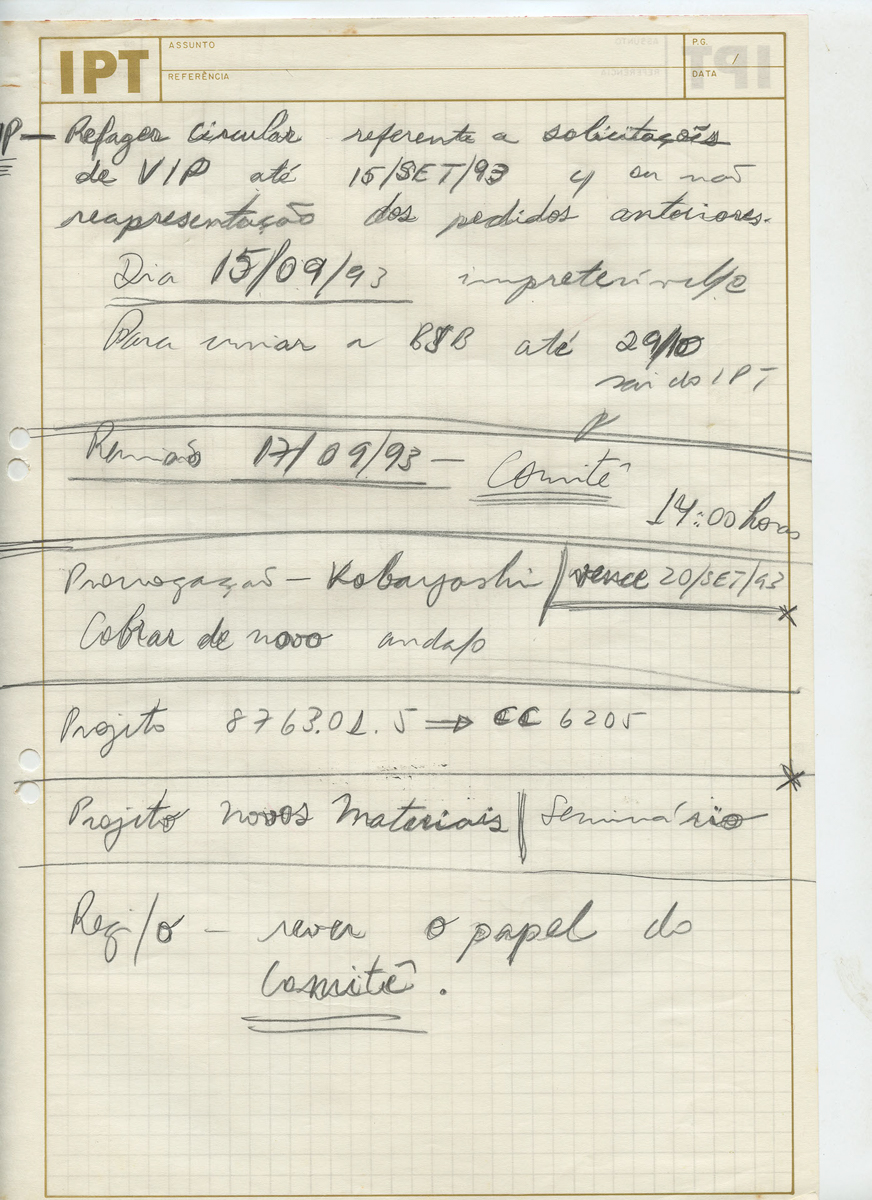 IPT
ASSUNTO
REFERÊNCIA
P.G. /
DATA
IP — Refazer Circular referente a solicitações
de VIP até 15/SET/93 ou não
reapresentação dos pedidos anteriores.
Dia 15/09/93 impreterivel/e
Para enviar a BSB até 29/10
sai do IPT
Reunião 17/09/93 —
Comitê
14:00 horas
Prorrogação — Kobayashi / vence 20/SET/93
Cobrar de novo anda/o
Projeto 8763.01.5 ⇒ CC 6205
Projeto novos Materiais | Seminário
Reg/o — rever o papel do
Comitê.